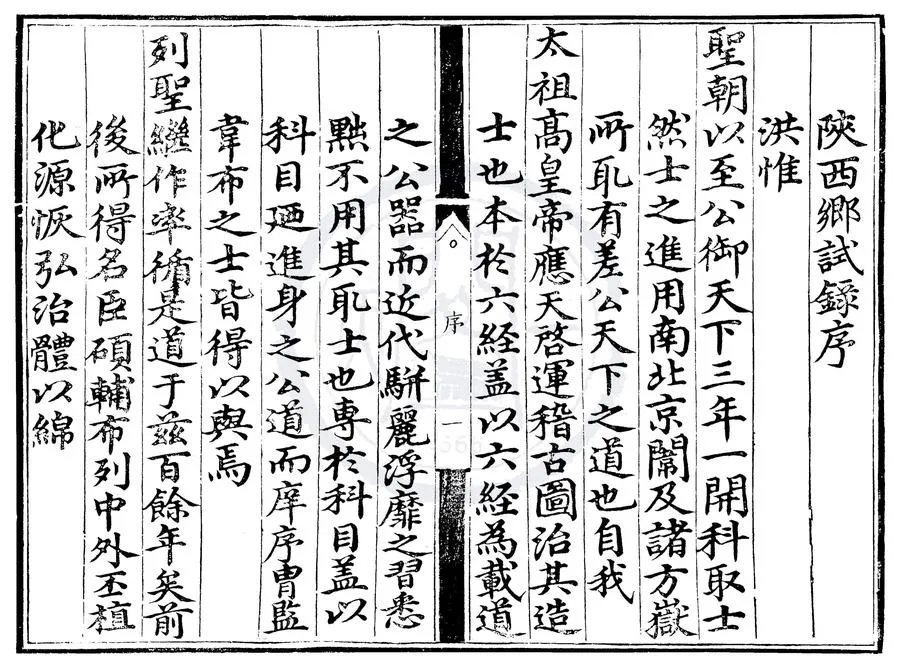 陝西鄉試錄序
洪惟
聖朝以至公御天下三年一開科取士
然士之進用南北京闈及諸方嶽
所取有差公天下之道也自我
太祖高皇帝應天啓運稽古圖治其造
士也本於六経盖以六経為載道
序
一
之公器而近代駢麗浮靡之習悉
黜不用其取士也専於科目盖以
科目廼進身之公道而庠序冑監
韋布之士皆得以與焉
列聖繼作率循是道于茲百餘年矣前
後所得名臣碩輔布列中外丕植
化源恢弘治體以綿